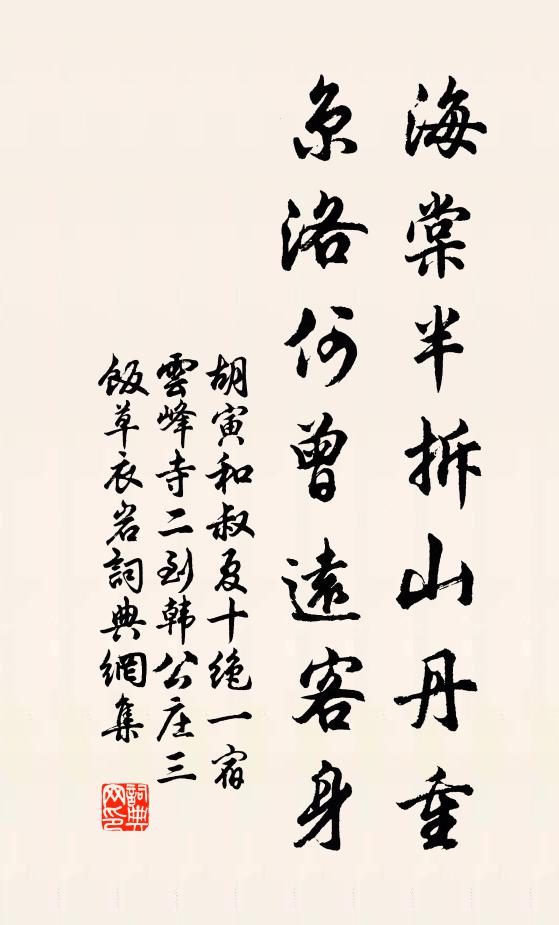 海棠半拆山丹重
京洛何曾遠客身
胡寅和叔夏十絶一宿
雲峰寺二到韩公庄三
飯草衣岩詞典網集
詞典网印